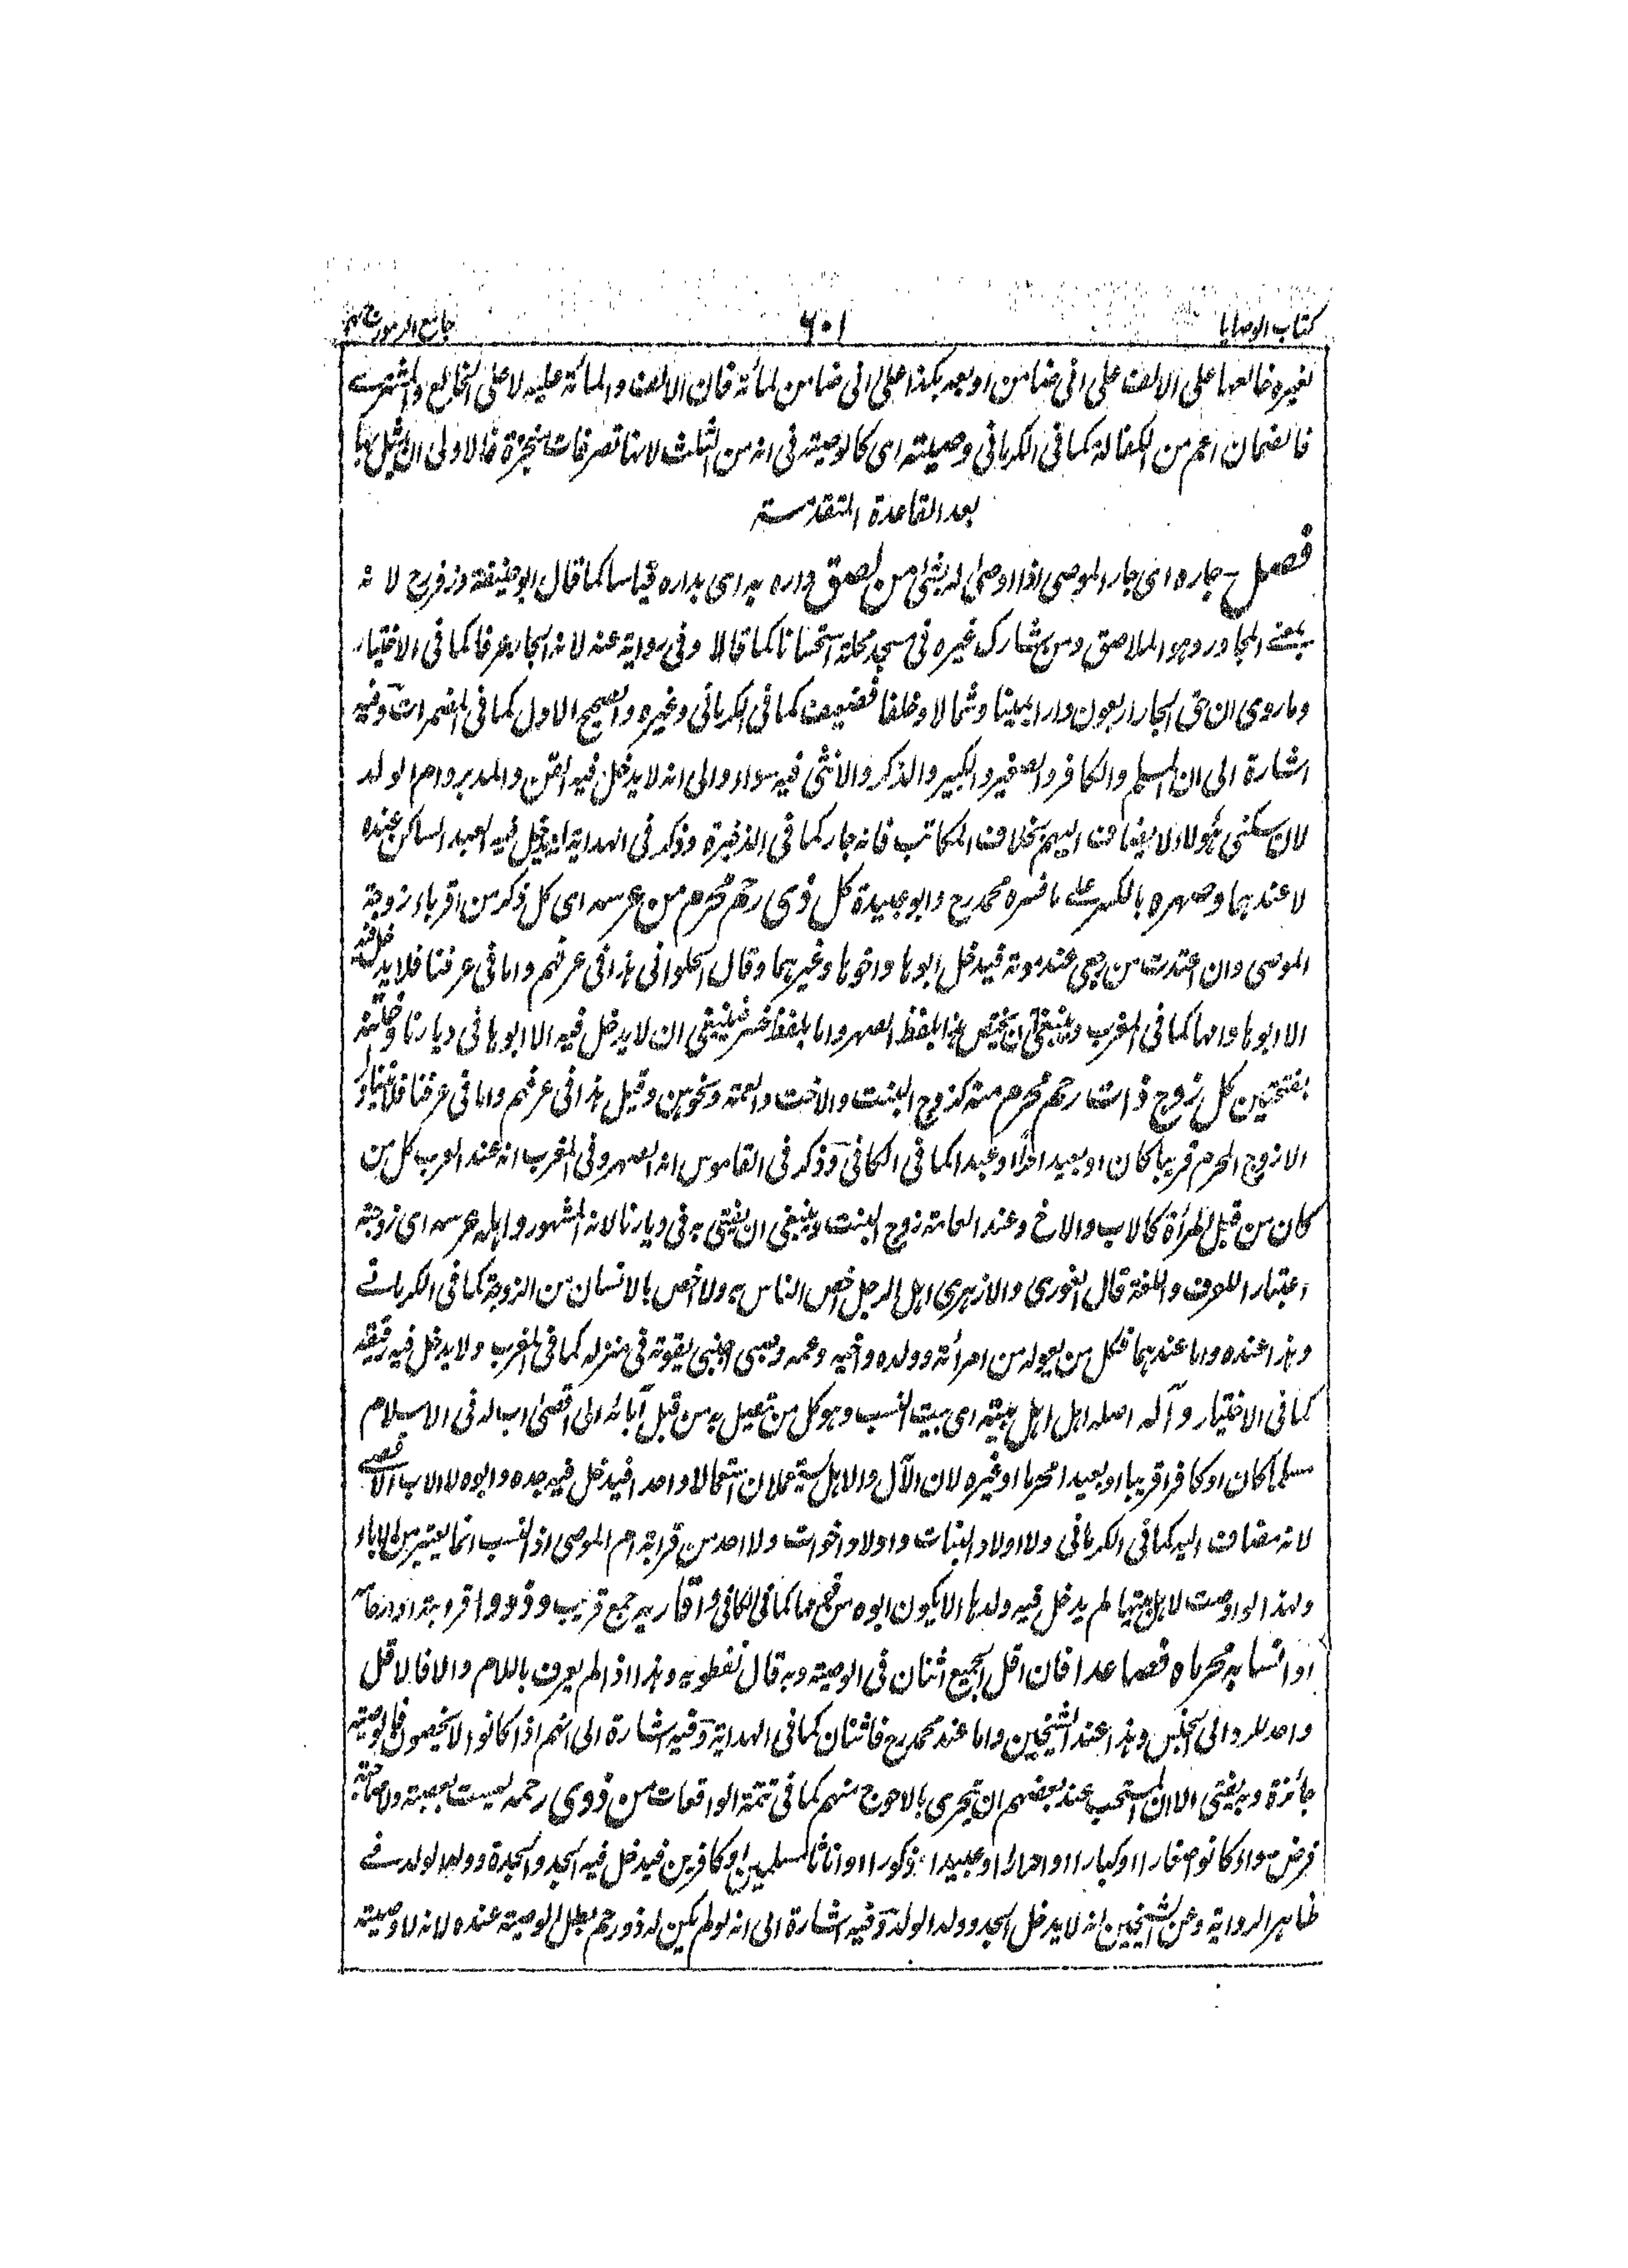 كتاب الوصايا
٦٠١
جامع الرموز ج
لغيره خالعها على الالف على انى ضامن او بعد بكذا على انى ضامن لمائة فان الالف والمائة عليه لا على الخالع والمشترے
فالضمان اعم من الكفالة كما فى الكرمانى وصيته اى كالوصية فى انه من الثلث لانها تصرفات منجزة فالاولى ان بها
بعد القاعدة المتقدمة
فصل جاره اى جار الموصى اذا اوصىٰ له بشئ من لصق داره به اى بداره قياسا كما قال ابو حنيفة وزفررح لانه
بمعنے المجاور وهو الملاصق ومن يشارك غيره فى مسجد محلة استحسانا كما قالا وفى رواية عنه لانه الجار عرفا كما فى الاختيار
وما روى ان حق الجار اربعون دارا يمينا وشمالا وخلفا فضعيف كما فى الكرمانى وغيره والصحيح الاول كما فى المضمرات وفيه
اشارة الى ان المسلم والكافر والصغير والكبير والذكر والانثى فيه سواء والى انه لا يدخل فيه القن والمدبر وام الولد
لان سكنى هؤلاء لا يضاف اليهم بخلاف المكاتب فانه جار كما فى الذخيرة وذكر فى الهداية انه يدخل فيه العبد الساكن عنده
لا عندهما وصهره بالكسر علے ما فسره محمدرح وابو عبيدة كل ذى رحم محرم من عرسه اى كل ذكر من اقرباء زوجة
الموصى وان اعتدت من رجعى عند موته فيدخل ابوها واخوها وغيرهما وقال الحلوانى هذا فى عرفهم واما فى عرفنا فلا يدخل فيه
الا ابوها وامها كما فى المغرب وينبغى ان يختص هذا بلفظ الصهر واما بلفظ خسر فينبغى ان لا يدخل فيه الا ابوها فى ديارنا وختنه
بفتحتين كل زوج ذات رحم محرم منه كزوج البنت والاخت والعمة ونحوهن وقيل هذا فى عرفهم واما فى عرفنا فلا يتناول
الا زوج المحرم قريبا كان او بعيدا حرًا او عبدا كما فى الكافى وذكر فى القاموس انه الصهر وفى المغرب انه عند العرب كل من
كان من قبل المرأة كالاب والاخ وعند العامة زوج البنت وينبغى ان يفتى به فى ديارنا لانه المشهور واهله عرسه اى زوجته
اعتبارا للعرف واللغة قال الغورى والازهرى اهل الرجل اخص الناس به ولا اخص بالانسان من الزوجة كما فى الكرمانے
وهذا عنده واما عندهما فكل من يعوله من امرأته وولده واخيه وعمه وصبى اجنبى يقوته فى منزله كما فى المغرب ولا يدخل فيه رقيقه
كما فى الاختيار وآله اصله اهل اهل بيته اى بيت النسب وهو كل من يتصل به من قبل آبائه الى اقصىٰ اب له فى الاسلام
مسلما كان او كافرا قريبا او بعيدا محرما او غيره لان الآل والاهل يستعملان استعمالا واحدا فيدخل فيه جده وابوه لا الاب الاقصے
لانه مضاف اليه كما فى الكرمانى ولا اولاد البنات واولاد اخوات ولا احد من قرابة ام الموصى اذ النسب انما يعتبر من الآباء
ولهذا لو اوصت لاهل بيتها لم يدخل فيه ولدها الا ان يكون ابوه من قومها كما فى الكافى واقاربه جمع قريب وذووا قرابته او ارحامه
او انسابه محرماه فصاعدا فان اقل الجمع اثنان فى الوصية وبه قال نفطويه وهذا اذا لم يعرف باللام والا فالاقل
واحد للرد الى الجنس وهذا عند الشيخين واما عند محمدرح فاثنان كما فى الهداية وفيه اشارة الى انهم اذا كانوا لا يحصون فالوصية
جائزة وبه يفتى الا ان المستحب عند بعضهم ان يتحرى بالاحوج منهم كما فى تتمة الواقعات من ذوى رحمه ليست بعصبة ولا صاحبة
فرض سواء كانوا صغارا او كبارا او احرارا او عبيدا ذكورا او اناثا مسلمين او كافرين فيدخل فيه الجد والجدة وولد الولد فے
ظاهر الرواية وعن الشيخين انه لا يدخل الجد وولد الولد وفيه اشارة الى انه لو لم يكن له ذو رحم بطل الوصية عنده لانه لا وصية